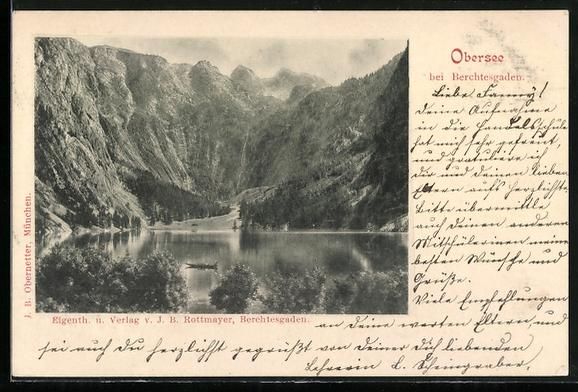 Obersee
bei Berchtesgaden.
Liebe Fanny!
Deine Aufnahme
in die Handelsschule
hat mich sehr gefreut,
und gratuliere ich
Dir und deinen lieben
Eltern aufs herzlichste.
Bitte übermittle
auch deinen anderen
Mitschülerinen meine
besten Wünsche und
Grüße.
Viele Empfehlungen
an Deine werten Eltern, und
sei auch Du herzlichst gegrüßt von deiner Dich liebenden
Lehrerin L. Scheingraber,
J. B. Obernetter, München.
Eigenth. u. Verlag v. J. B. Rottmayer, Berchtesgaden.